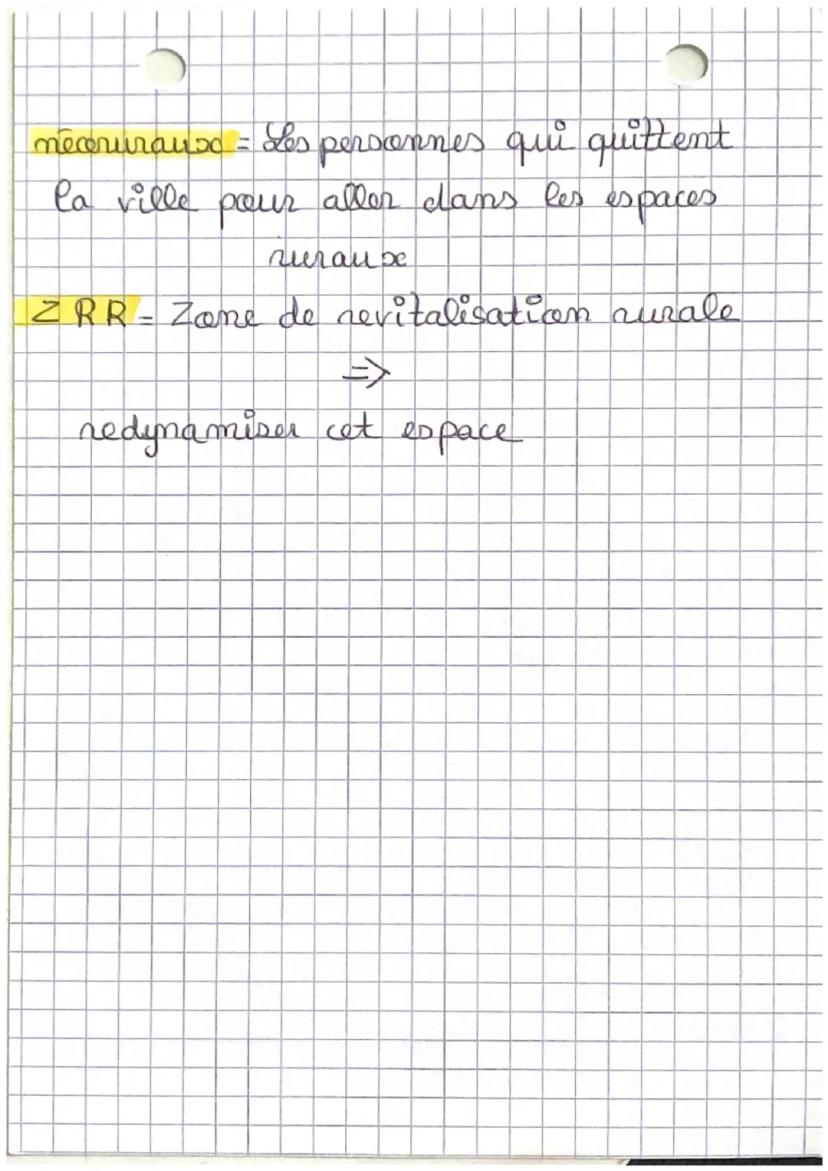 néoruraux = Les personnes qui quittent
la ville pour aller dans les espaces
ruraux
ZRR = Zone de revitalisation rurale
⇒
redynamiser cet espace